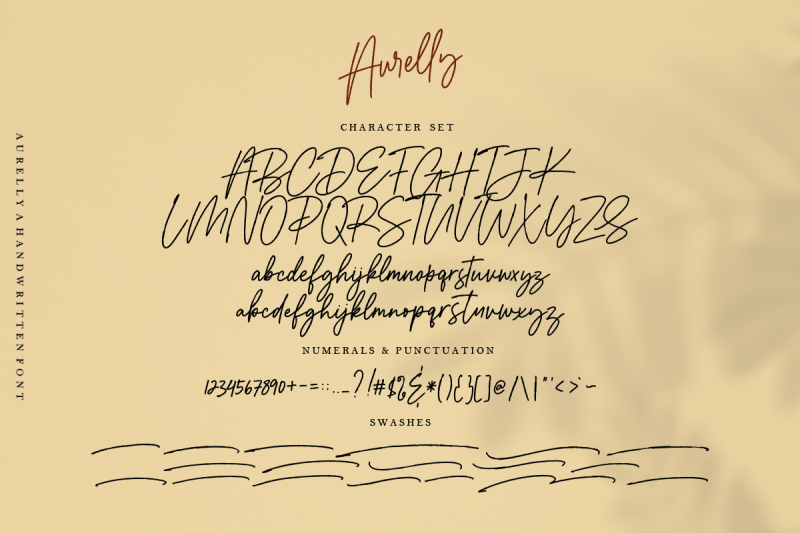 Aurelly
CHARACTER SET
ABCDEFGHIJK
LMNOPQRSTUVWXYZ&
abcdefghijklmnopqrstuvwxyz
abcdefghijklmnopqrstuvwxyz
NUMERALS & PUNCTUATION
1234567890+-=::.._?!#$%&*(){}[]@/\|"'<>`~
SWASHES
AURELLY A HANDWRITTEN FONT